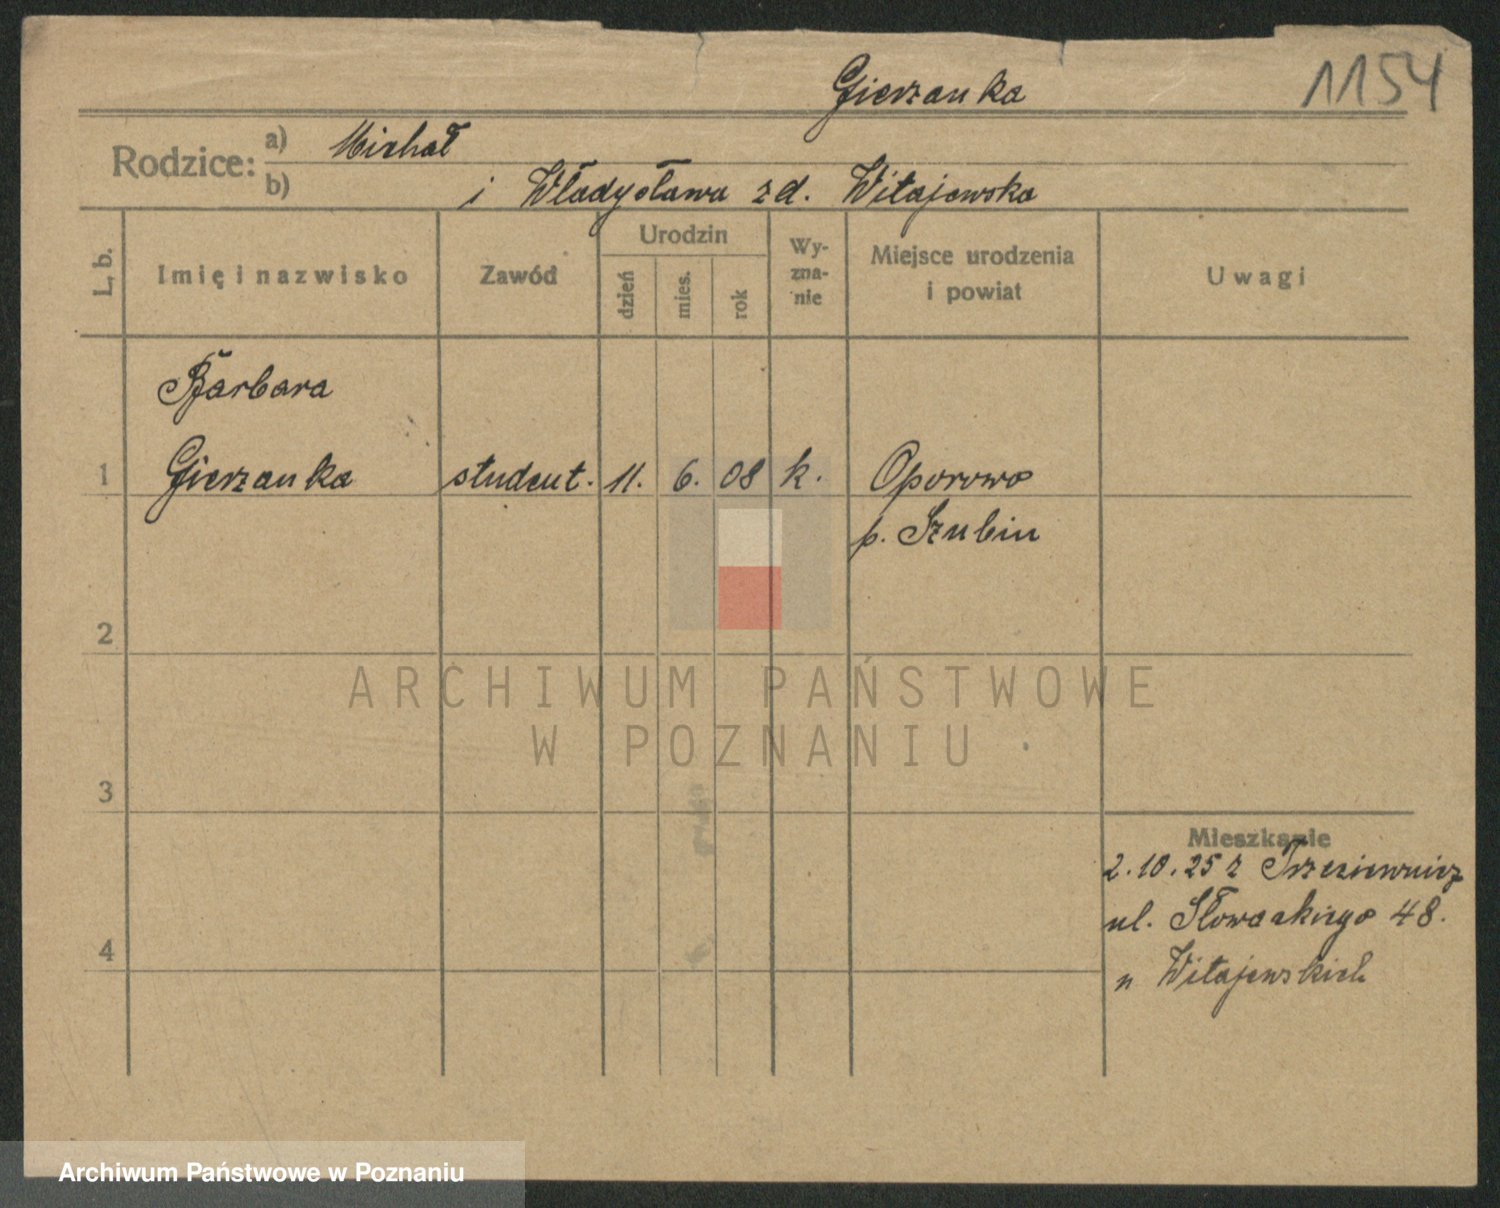 Gierzanka 1154
Rodzice: a) Michał
b) i Władysława z d. Witajewska
L. b. Imię i nazwisko Zawód Urodzin dzień mies. rok Wyznanie Miejsce urodzenia i powiat Uwagi
Barbara
1 Gierzanka student. 11. 6. 08 k. Oporowo
p. Szubin
2
ARCHIWUM PAŃSTWOWE
W POZNANIU
3
Mieszkanie
2.10.25 z
ul. Słowackiego 48.
4
u Witajewskich
Archiwum Państwowe w Poznaniu